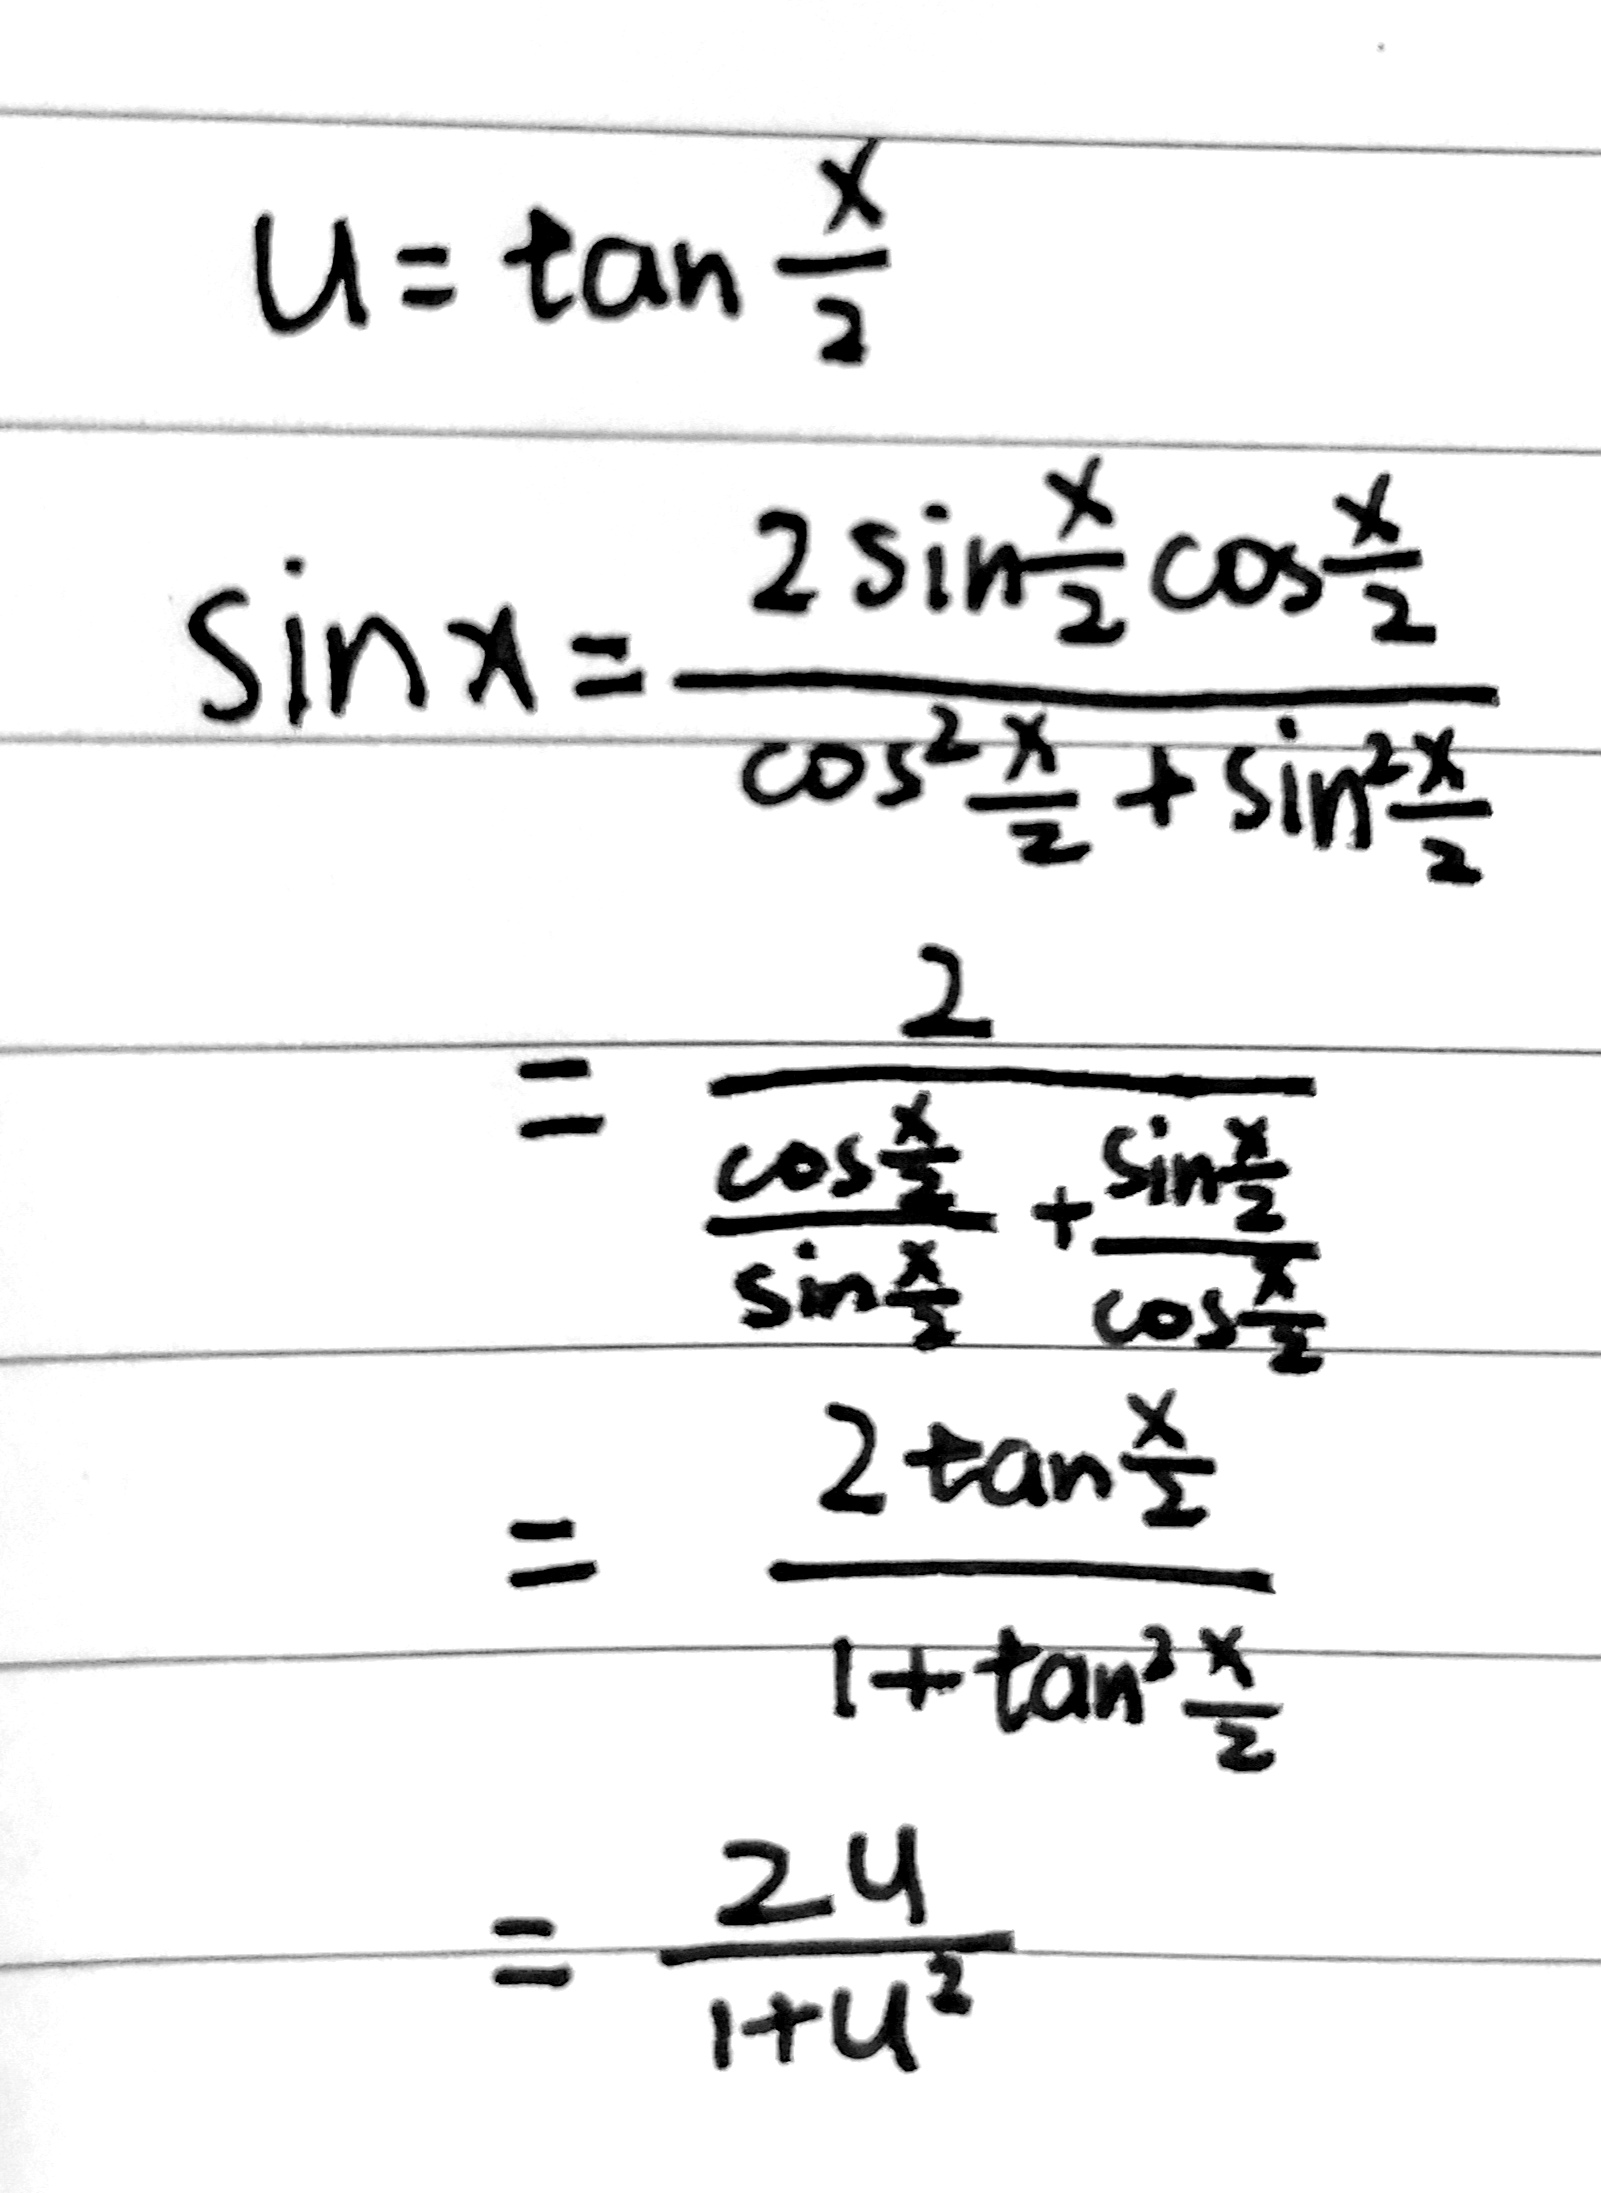 u = tan x/2
sin x = (2 sin x/2 cos x/2)/(cos² x/2 + sin² x/2)
= 2/((cos x/2)/(sin x/2) + (sin x/2)/(cos x/2))
= (2 tan x/2)/(1 + tan² x/2)
= 2u/(1+u²)